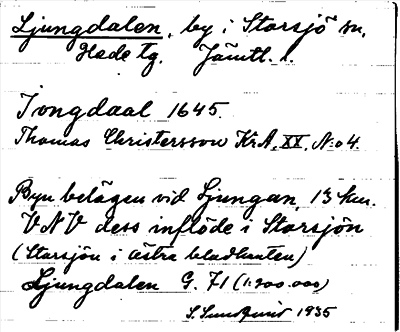 Ljungdalen, by i Storsjö sn.
Hede tg. Jämtl. l.
Jongdaal 1645.
Thomas Christersson KrA, XX, N:o 4.
Byn belägen vid Ljungan, 13 km.
VNV dess inflöde i Storsjön
(Storsjön i östra bladkanten)
Ljungdalen G. 71 (1:200.000)
S. Sundqvist 1935